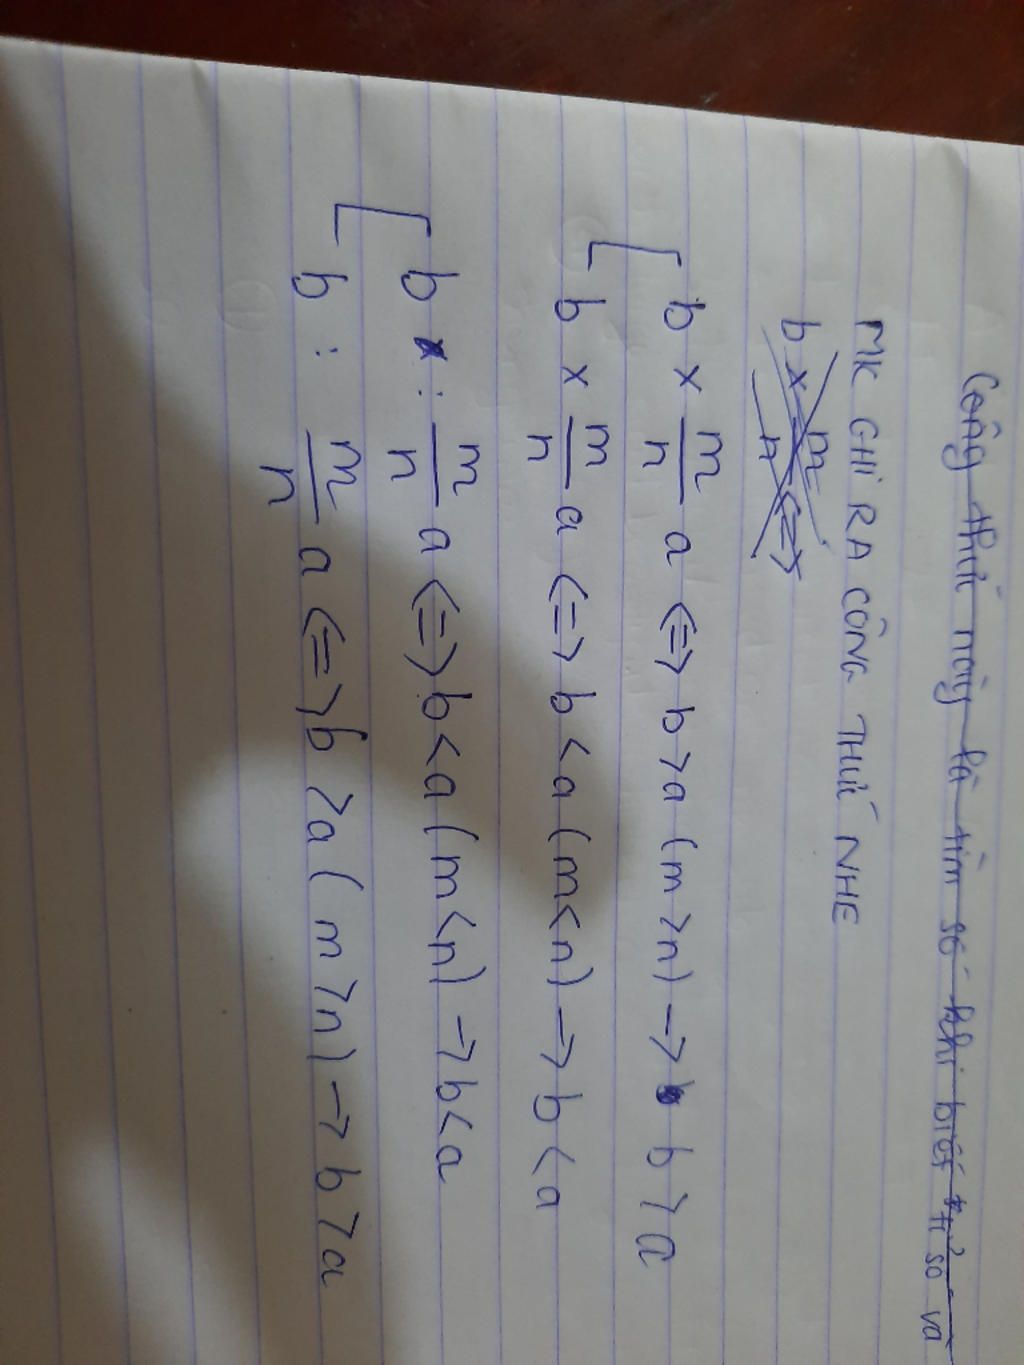 Công thức này là tìm số khi biết tỉ số và
MK GHI RA CÔNG THỨC NHE
b × m/n <=>
b × m/n a <=> b > a (m > n) -> b > a
b × m/n a <=> b < a (m < n) -> b < a
b : m/n a <=> b < a (m < n) -> b < a
b : m/n a <=> b > a (m > n) -> b > a